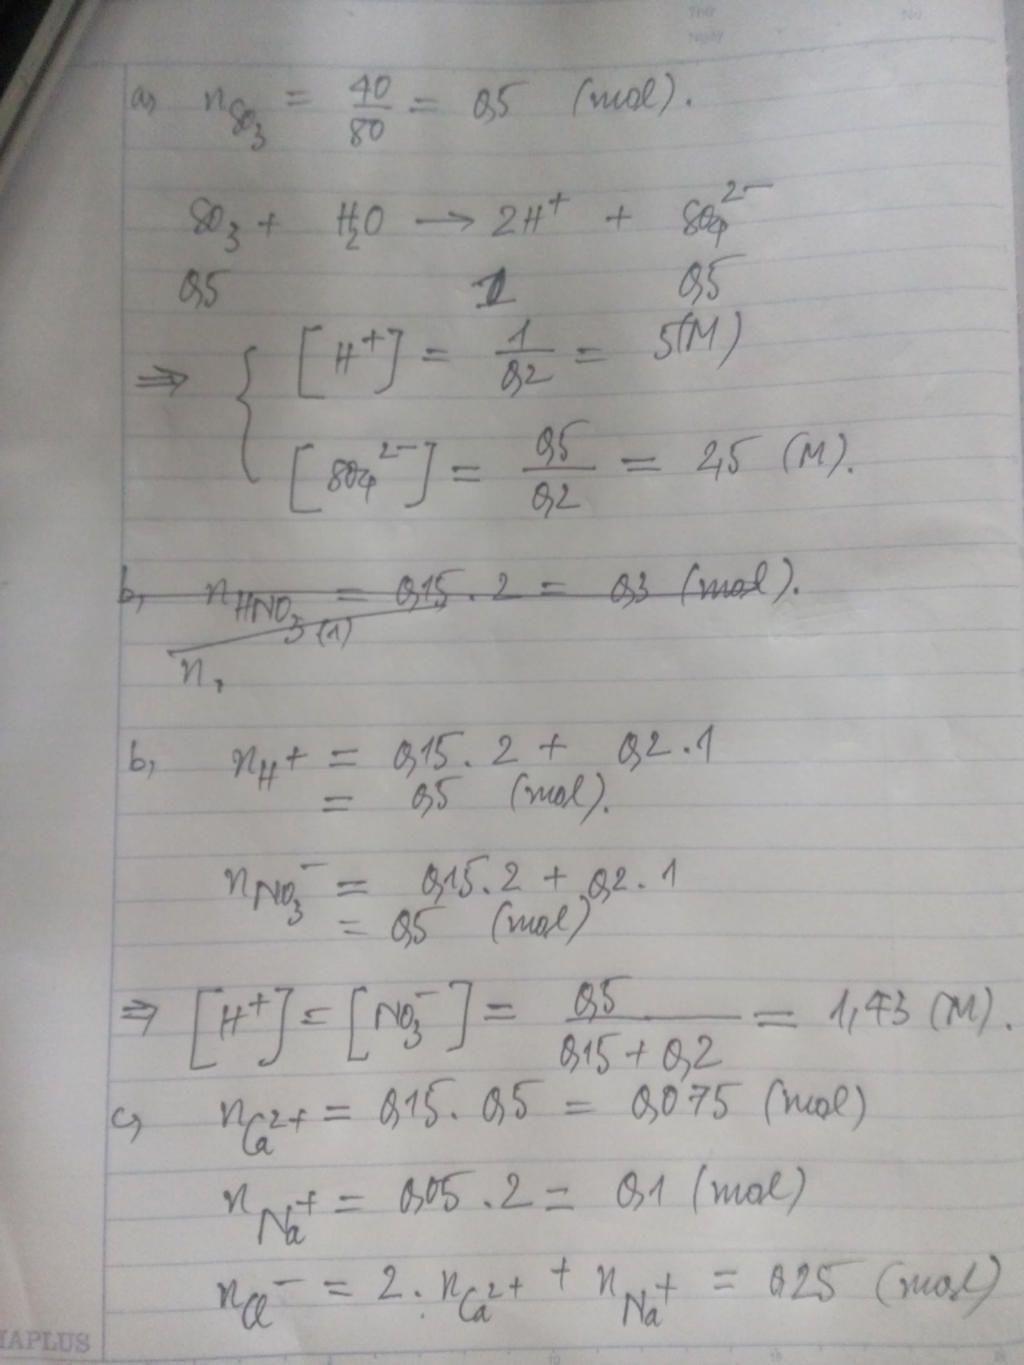 Thứ
No
Ngày
a, n_{SO_3} = \frac{40}{80} = 0,5 (mol).
SO_3 + H_2O → 2H^+ + SO_4^{2-}
0,5 1 0,5
⇒ { [H^+] = \frac{1}{0,2} = 5(M)
[SO_4^{2-}] = \frac{0,5}{0,2} = 2,5 (M).
b, n_{HNO_3 (1)} = 0,15 . 2 = 0,3 (mol).
n,
b, n_{H^+} = 0,15 . 2 + 0,2 . 1
= 0,5 (mol).
n_{NO_3^-} = 0,15 . 2 + 0,2 . 1
= 0,5 (mol)
⇒ [H^+] = [NO_3^-] = \frac{0,5}{0,15 + 0,2} = 1,43 (M).
c, n_{Ca^{2+}} = 0,15 . 0,5 = 0,075 (mol)
n_{Na^+} = 0,05 . 2 = 0,1 (mol)
n_{Cl^-} = 2 . n_{Ca^{2+}} + n_{Na^+} = 0,25 (mol)
HAPLUS